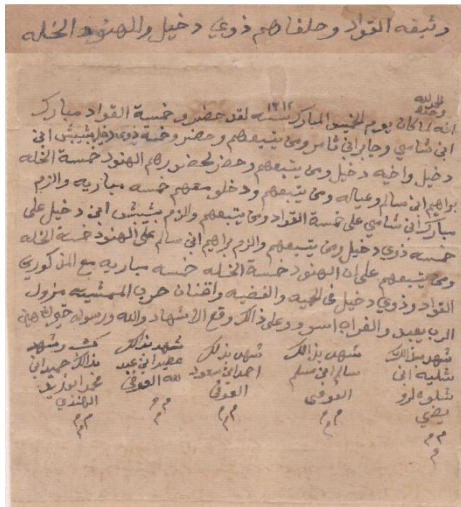 وثيقه القواد وحلفاهم ذوي دخيل والهنود الخله
الحمد لله
وحده
انه لما كان يوم الخميس المبارك سنه ١٣١٢ لقد حضرو خمسة القواد مبارك
ابن شاسي وجابر ابن ثامر ومن يتبعهم وحضرو خمسة ذوي دخيل شبيش ابن
دخيل واخيه دخيل ومن يتبعهم وحضر لحضورهم الهنود خمسة الخله
براهيم ابن سالم وعياله ومن يتبعهم ودخلو معهم خمسه مباريه والزم
مبارك ابن شاسي على خمسة القواد ومن يتبعهم والزم شبيش ابن دخيل على
خمسه ذوي دخيل ومن يتبعهم والزم براهيم ابن سالم على الهنود خمسة الخله
ومن يتبعهم على ان الهنود خمسة الخله خمسه مباريه مع المذكورين
القواد وذوي دخيل في الحيه والقضيه
وعلى ذالك وقع الاشهاد والله ورسوله خير الشاهدين
شهد بذالك
شليه ابن
شلوه
شهد بذالك
سالم ابن مسلم
العوفي
شهد بذالك
احمد ابن سعود
العوفي
شهد بذالك
ابن عبد
الله العوفي
كتبه وشهد
بذالك حميد ابن
محمد ابو زيد
الهندي